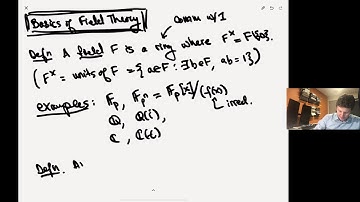 Basics of Field Theory
comm w/1
Defn A field F is a ring where F^× = F\{0}.
(F^× = units of F = {a∈F : ∃b∈F, ab=1})
examples: 𝔽_p, 𝔽_{p^n} = 𝔽_p[x]/(f(x))
irred.
ℚ, ℚ(i),
ℂ, ℂ(t)
Defn. A